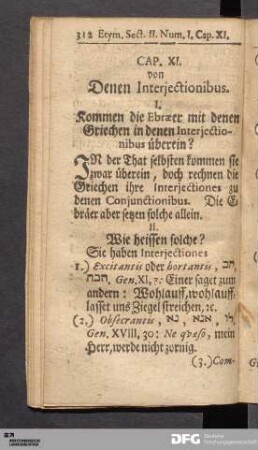 312 Etym. Sect. II. Num. I. Cap. XI.
CAP. XI.
von
Denen Interjectionibus.
I.
Kommen die Ebræer mit denen
Griechen in denen Interjectio-
nibus überein?
IN der That selbsten kommen sie
zwar überein, doch rechnen die
Griechen ihre Interjectiones zu
denen Conjunctionibus. Die E-
bräer aber setzen solche allein.
II.
Wie heissen solche?
Sie haben Interjectiones
1.) Excitantis oder hortantis, הב,
הבה Gen. XI, 3: Einer saget zum
andern: Wohlauff, wohlauff,
lasset uns Ziegel streichen, ꝛc.
(2.) Obsecrantis, נא, אנא, לו
Gen. XVIII, 30: Ne qvæso, mein
Herr, werde nicht zornig.
(3.) Com-
DFG Deutsche
Forschungsgemeinschaft